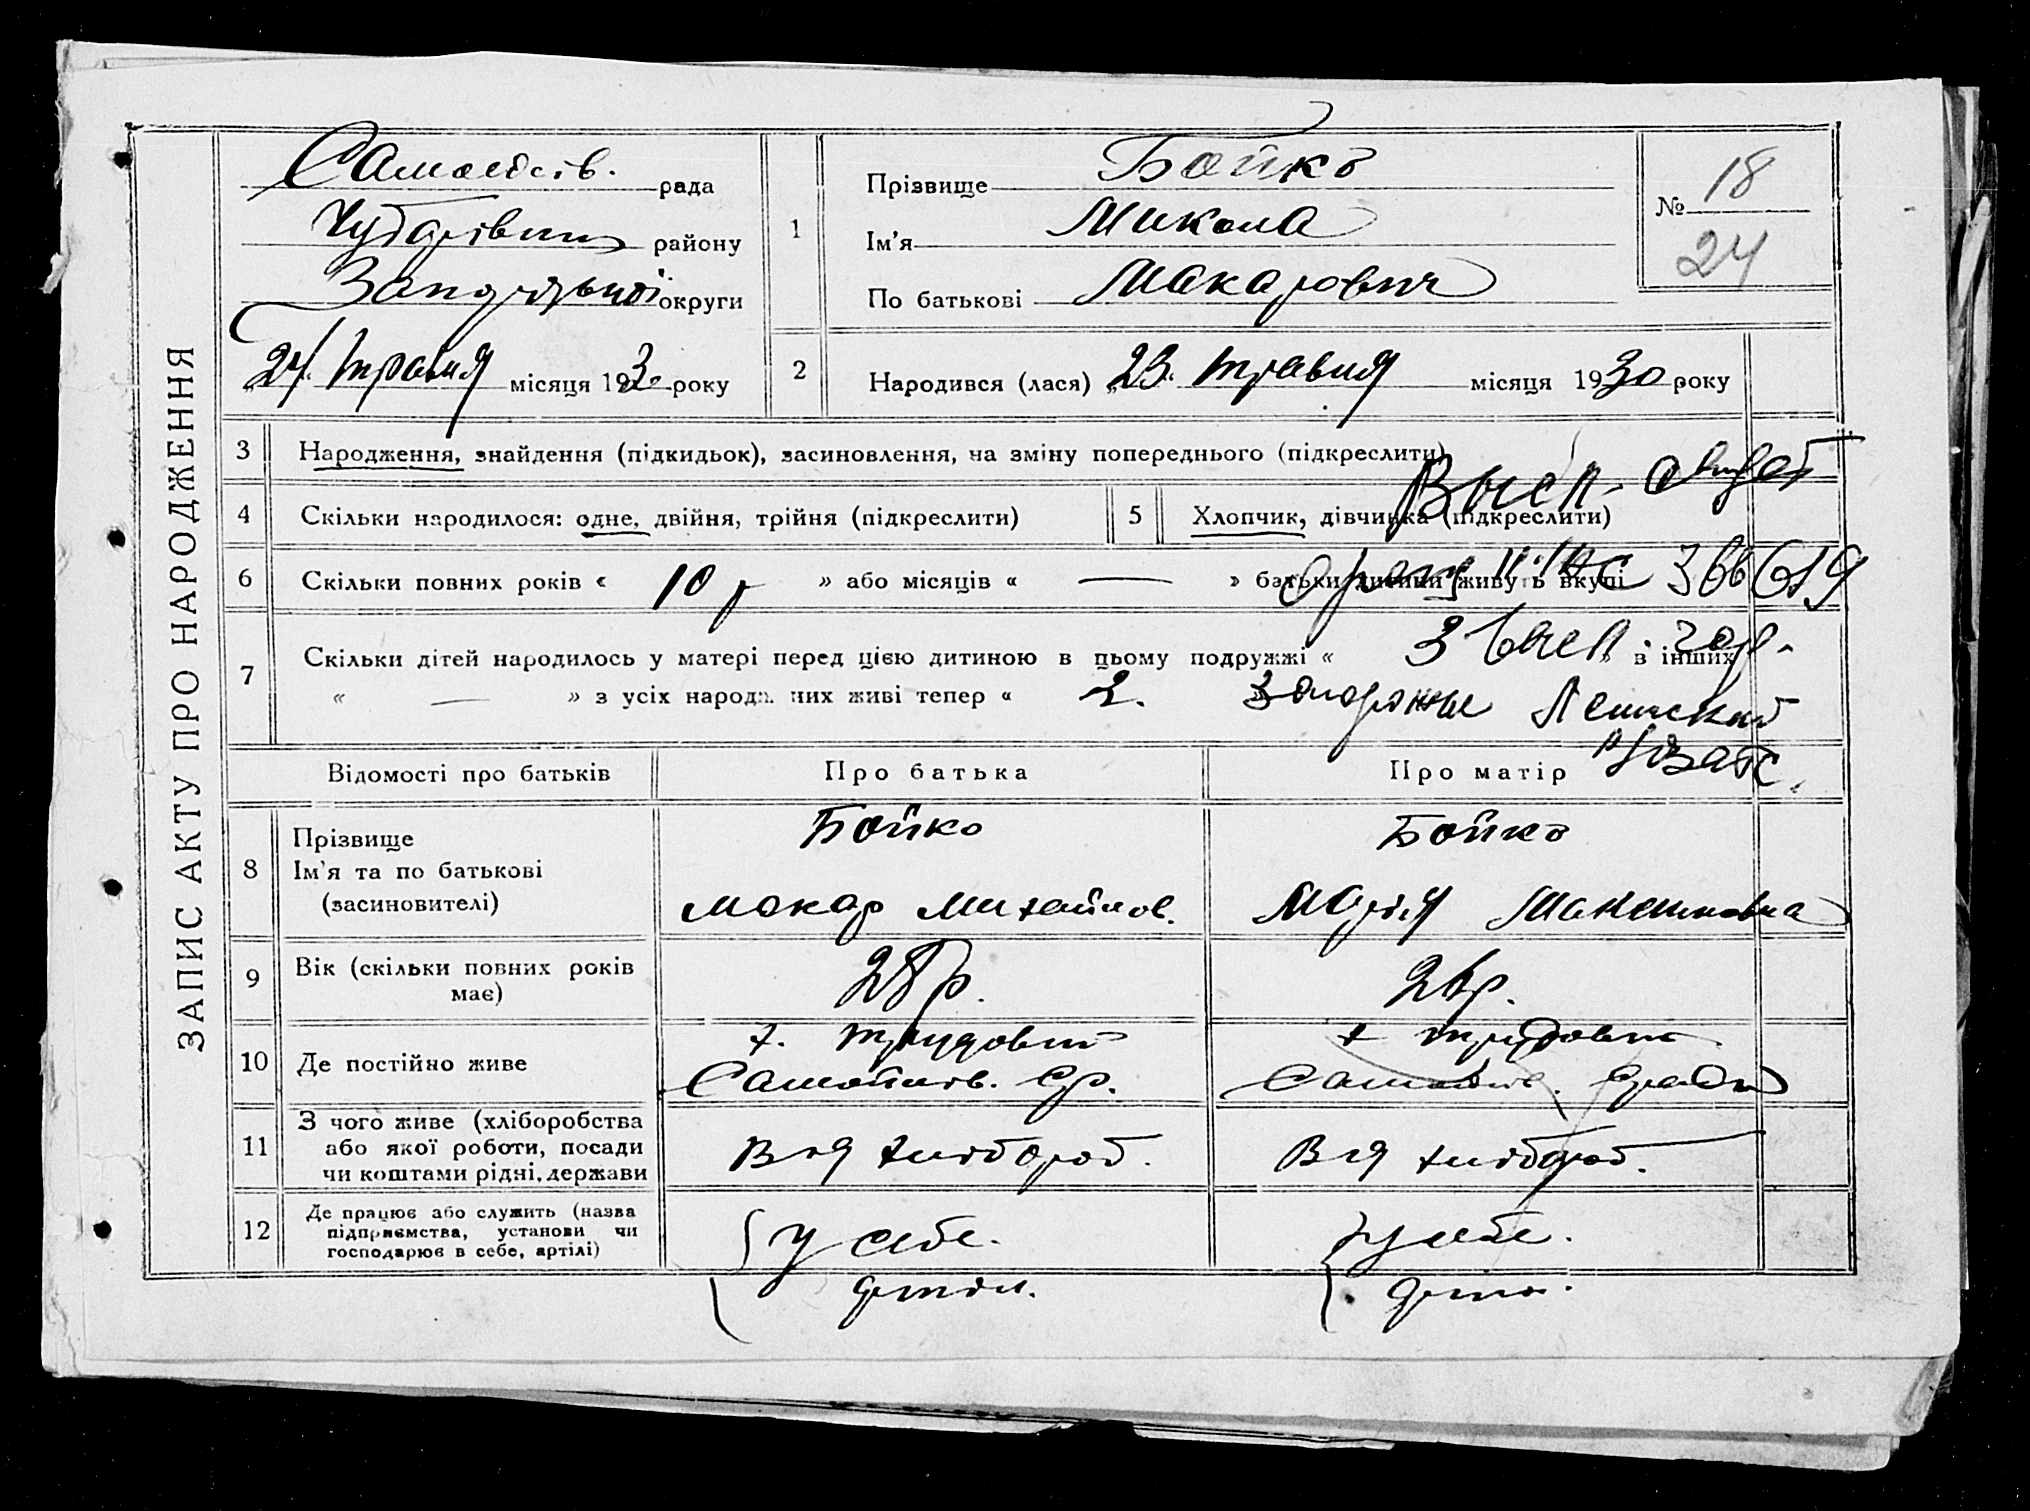 ЗАПИС АКТУ ПРО НАРОДЖЕННЯ
рада
Чубарівськ району
Запорізької округи
„24“ травня місяця 1930 року
1
Прізвище Бойко
Ім'я Микола
По батькові Макарович
№ 18
24
2
Народився (лася) „23“ травня місяця 1930 року
3 Народження, знайдення (підкидьок), засиновлення, на зміну попереднього (підкреслити)
4 Скільки народилося: одне, двійня, трійня (підкреслити)
5 Хлопчик, дівчинка (підкреслити)
6 Скільки повних років « 10 р » або місяців « — » батьки дитини живуть вкупі
7 Скільки дітей народилось у матері перед цією дитиною в цьому подружжі « 3 » в інших
« — » з усіх народжених живі тепер « 2.
366619
Відомості про батьків
Про батька
Про матір
8 Прізвище
Ім'я та по батькові
(засиновителі)
Бойко
Макар Михайлов.
Бойко
Марія
9 Вік (скільки повних років
має)
28 р.
26 р.
10 Де постійно живе
х. Трудовий
Самойлів. с/р.
х Трудовий
11 З чого живе (хліборобства
або якої роботи, посади
чи коштами рідні, держави
Вия хлібороб.
Вия хлібороб.
12 Де працює або служить (назва
підприємства, установи чи
господарює в себе, артілі)
у себе.
артіл.
у себе.